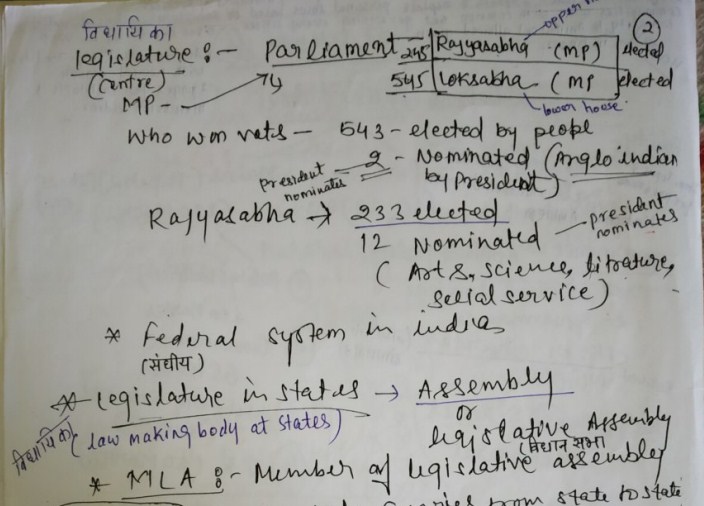 विधायिका
upper
2
legislature :- Parliament 245 Rajyasabha (MP) elected
(Centre)
545 Loksabha (MP elected
MP -
lower house
Who won vots - 543 - elected by people
president nominates 2 - Nominated (Anglo indian
by President)
Rajyasabha → 233 elected
12 Nominated - president nominates
(Arts, science, litrature,
socialservice)
* Federal system in india
(संघीय)
* Legislature in states → Assembly
or
विधायिका (law making body at states) legislative Assembly
(विधान सभा
* MLA :- Member of legislative assembly
from state to state